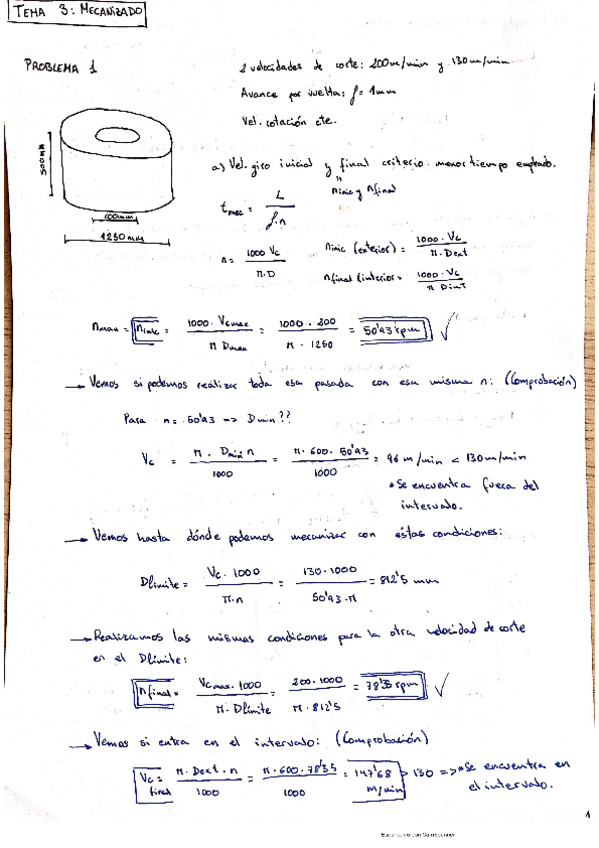 TEMA 3: MECANIZADO
PROBLEMA 1
2 velocidades de corte: 200m/min y 130m/min
Avance por vuelta: f = 1mm
Vel. rotación cte.
a) Vel. giro inicial y final criterio menor tiempo empleado.
ninic y nfinal
500mm
600mm
1250 mm
tmec = L / f.n
n = 1000 Vc / π.D
ninic (exterior) = 1000 · Vc / π . Dext
nfinal (interior) = 1000 · Vc / π Dint
nmax = ninic = 1000 · Vcmax / π Dmax = 1000 · 200 / π · 1250 = 50'93 rpm ✓
→ Vemos si podemos realizar toda esa pasada con esa misma n: (Comprobación)
Para n = 50'93 => Dmin??
Vc = π . Dmin n / 1000 = π · 600 · 50'93 / 1000 = 96 m/min < 130m/min
* Se encuentra fuera del
intervalo.
→ Vemos hasta dónde podemos mecanizar con éstas condiciones:
Dlímite = Vc · 1000 / π · n = 130 · 1000 / 50'93 · π = 812'5 mm
→ Realizamos las mismas condiciones para la otra velocidad de corte
en el Dlímite:
nfinal = Vcmax · 1000 / π · Dlímite = 200 · 1000 / π · 812'5 = 78'35 rpm ✓
→ Vemos si entra en el intervalo: (Comprobación)
Vc final = π · Dext · n / 1000 = π · 600 · 78'35 / 1000 = 147'68 m/min > 130 => * Se encuentra en
el intervalo.
1
Escaneado con CamScanner